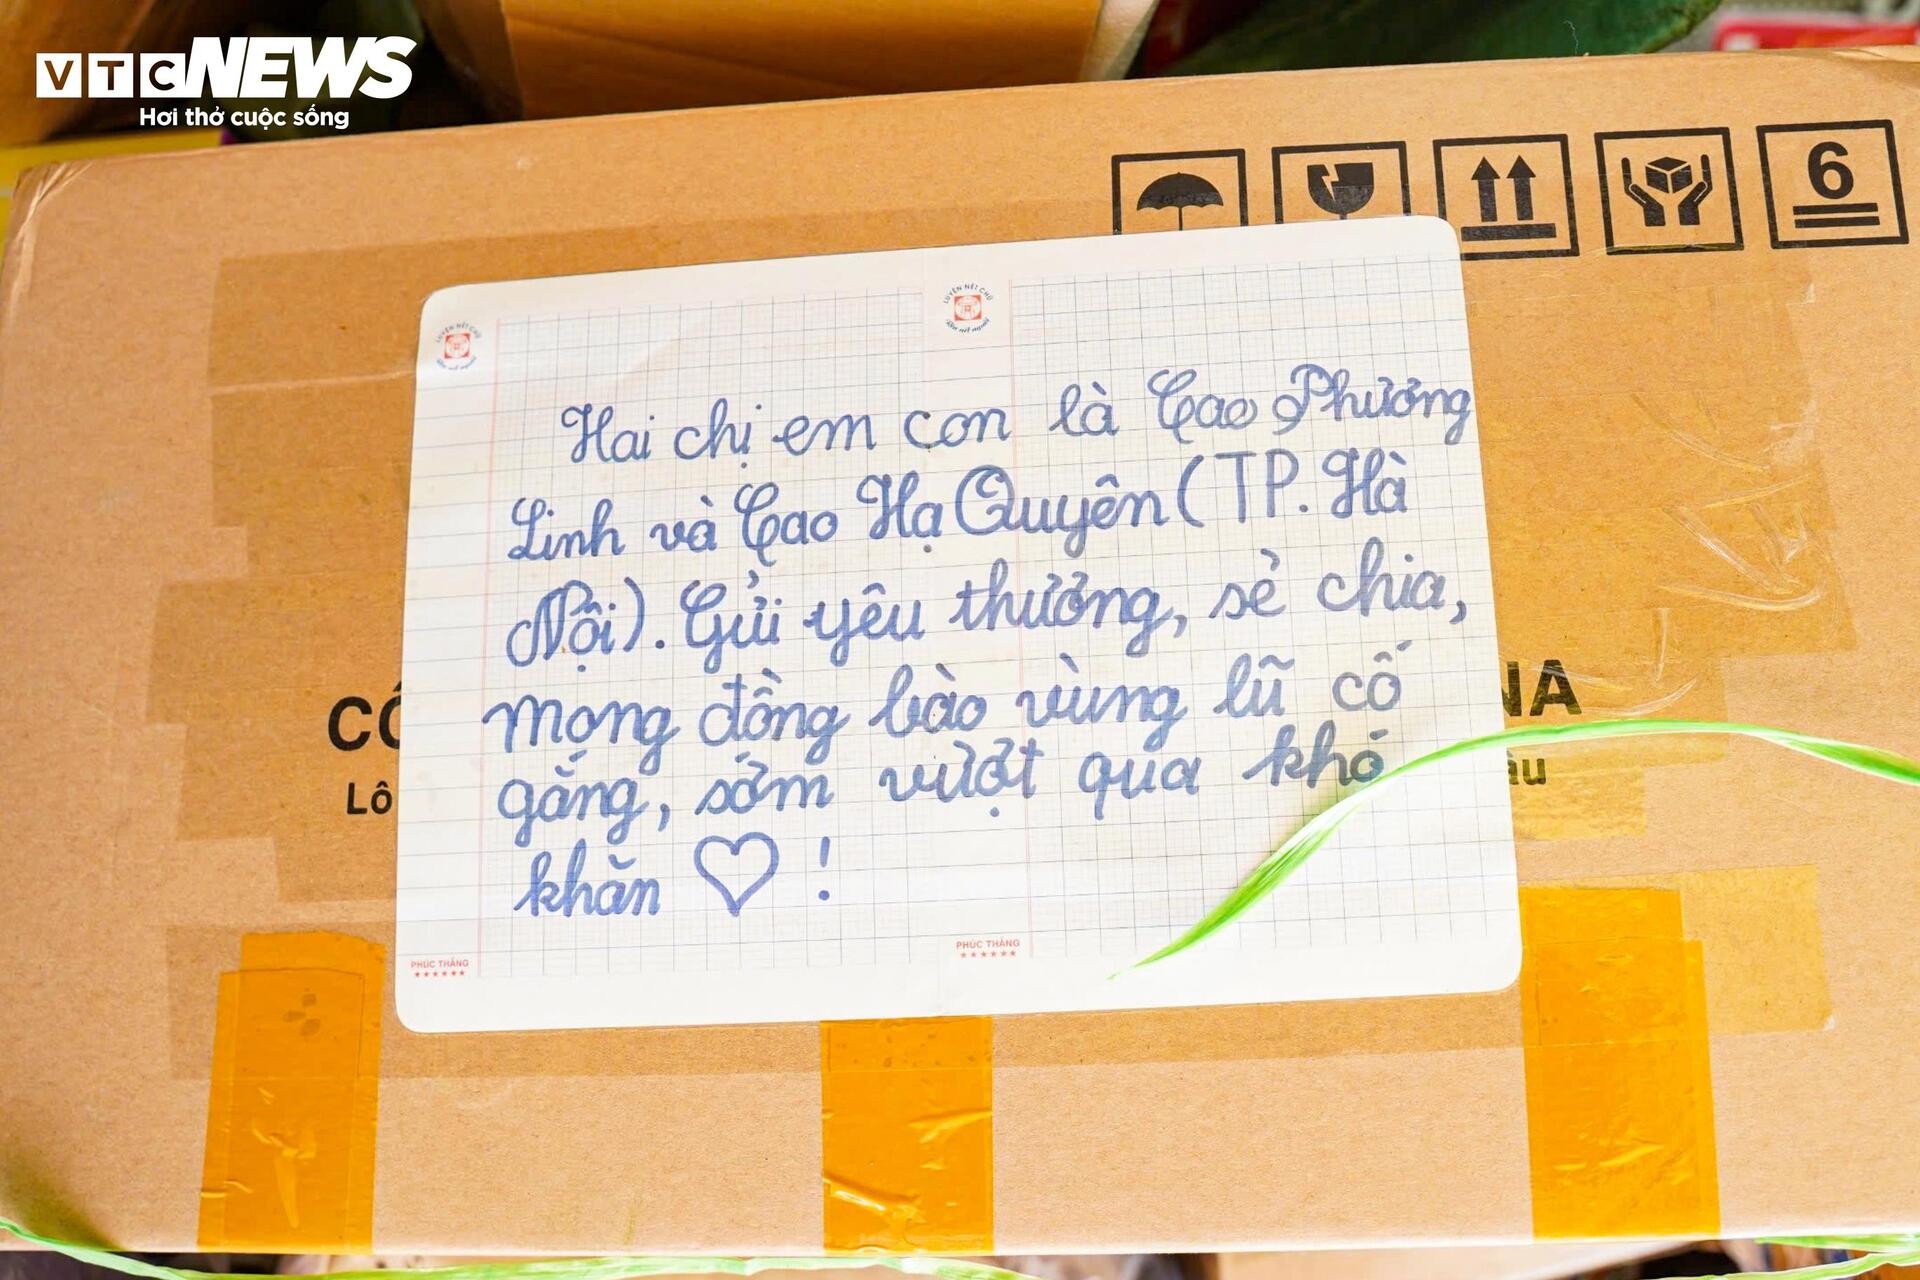 VTC NEWS
Hơi thở cuộc sống
6
LUYỆN NÉT CHỮ
Rèn nết người
LUYỆN NÉT CHỮ
Rèn nết người
Hai chị em con là Cao Phương
Linh và Cao Hạ Quyên (TP. Hà
Nội). Gửi yêu thương, sẻ chia,
mong đồng bào vùng lũ cố
gắng, sớm vượt qua khó
khăn ♡ !
CÔ
NA
Lô
àu
PHÚC THẮNG
PHÚC THẮNG